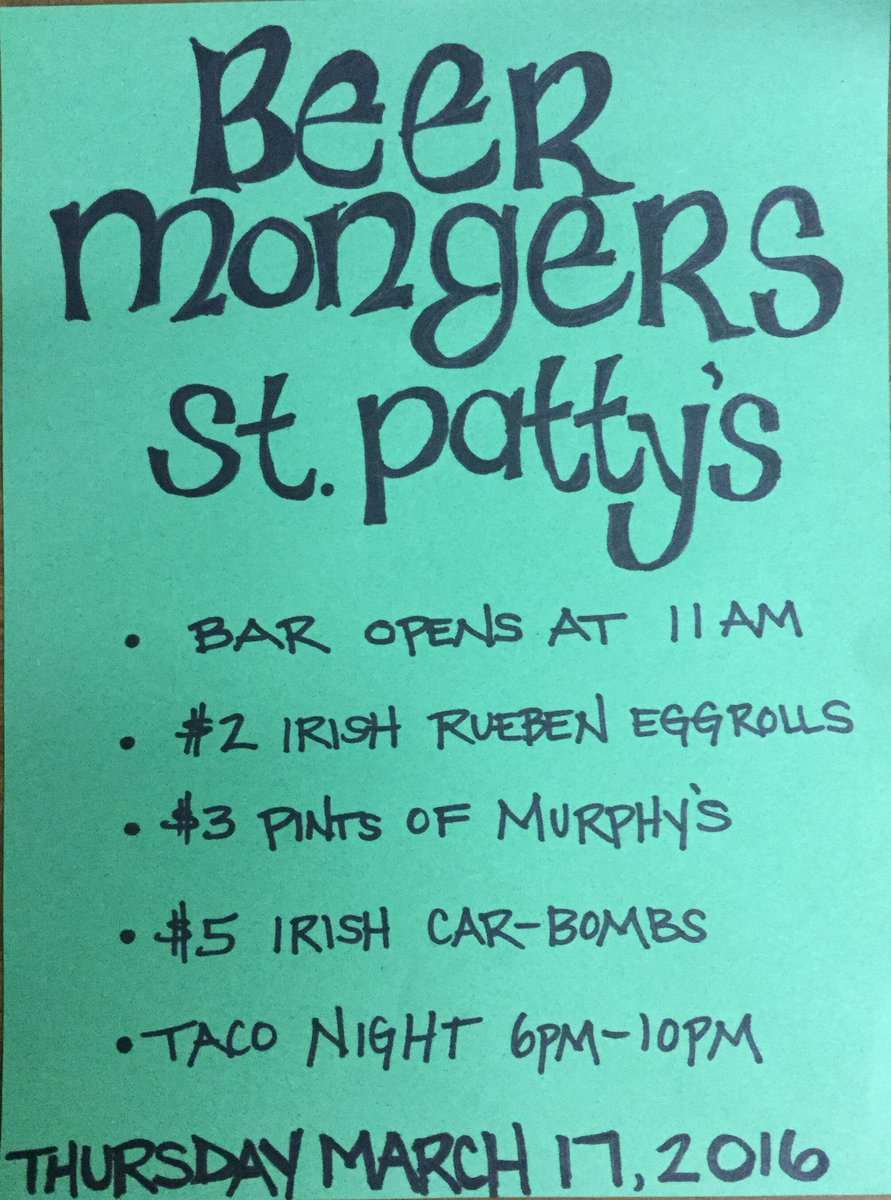 Beer
mongers
st. patty's
• BAR OPENS AT 11AM
• $2 IRISH RUEBEN EGGROLLS
• $3 PINTS OF MURPHY'S
• $5 IRISH CAR-BOMBS
• TACO NIGHT 6PM-10PM
THURSDAY MARCH 17, 2016